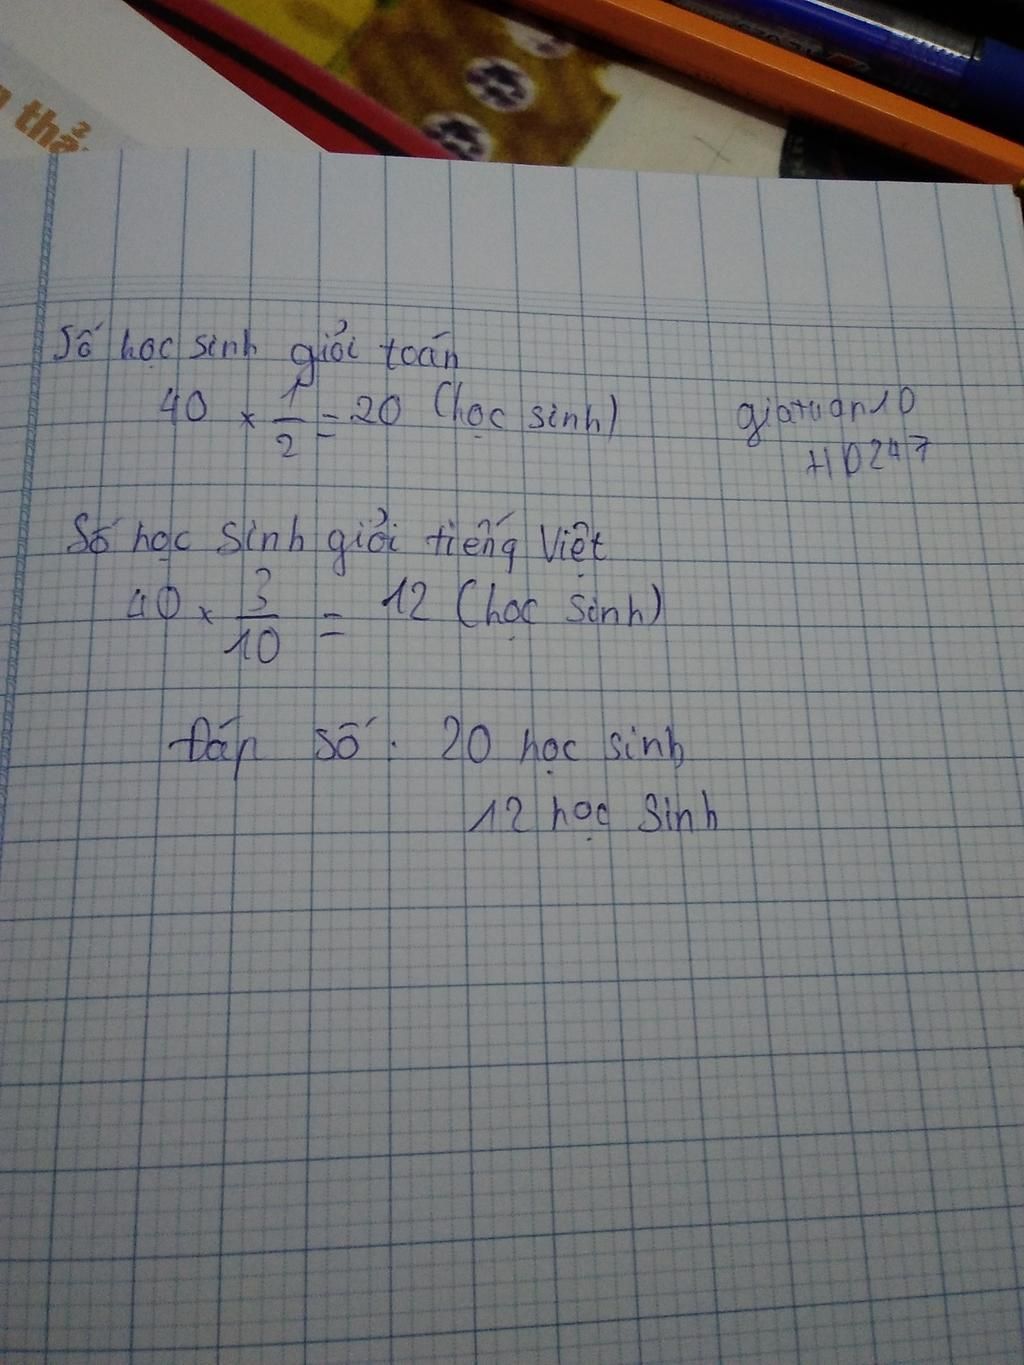 thả
Số học sinh giỏi toán
40 × 1/2 = 20 (học sinh)
giatuan10
HD247
Số học sinh giỏi tiếng Việt
40 × 3/10 = 12 (học sinh)
Đáp số. 20 học sinh
12 học sinh